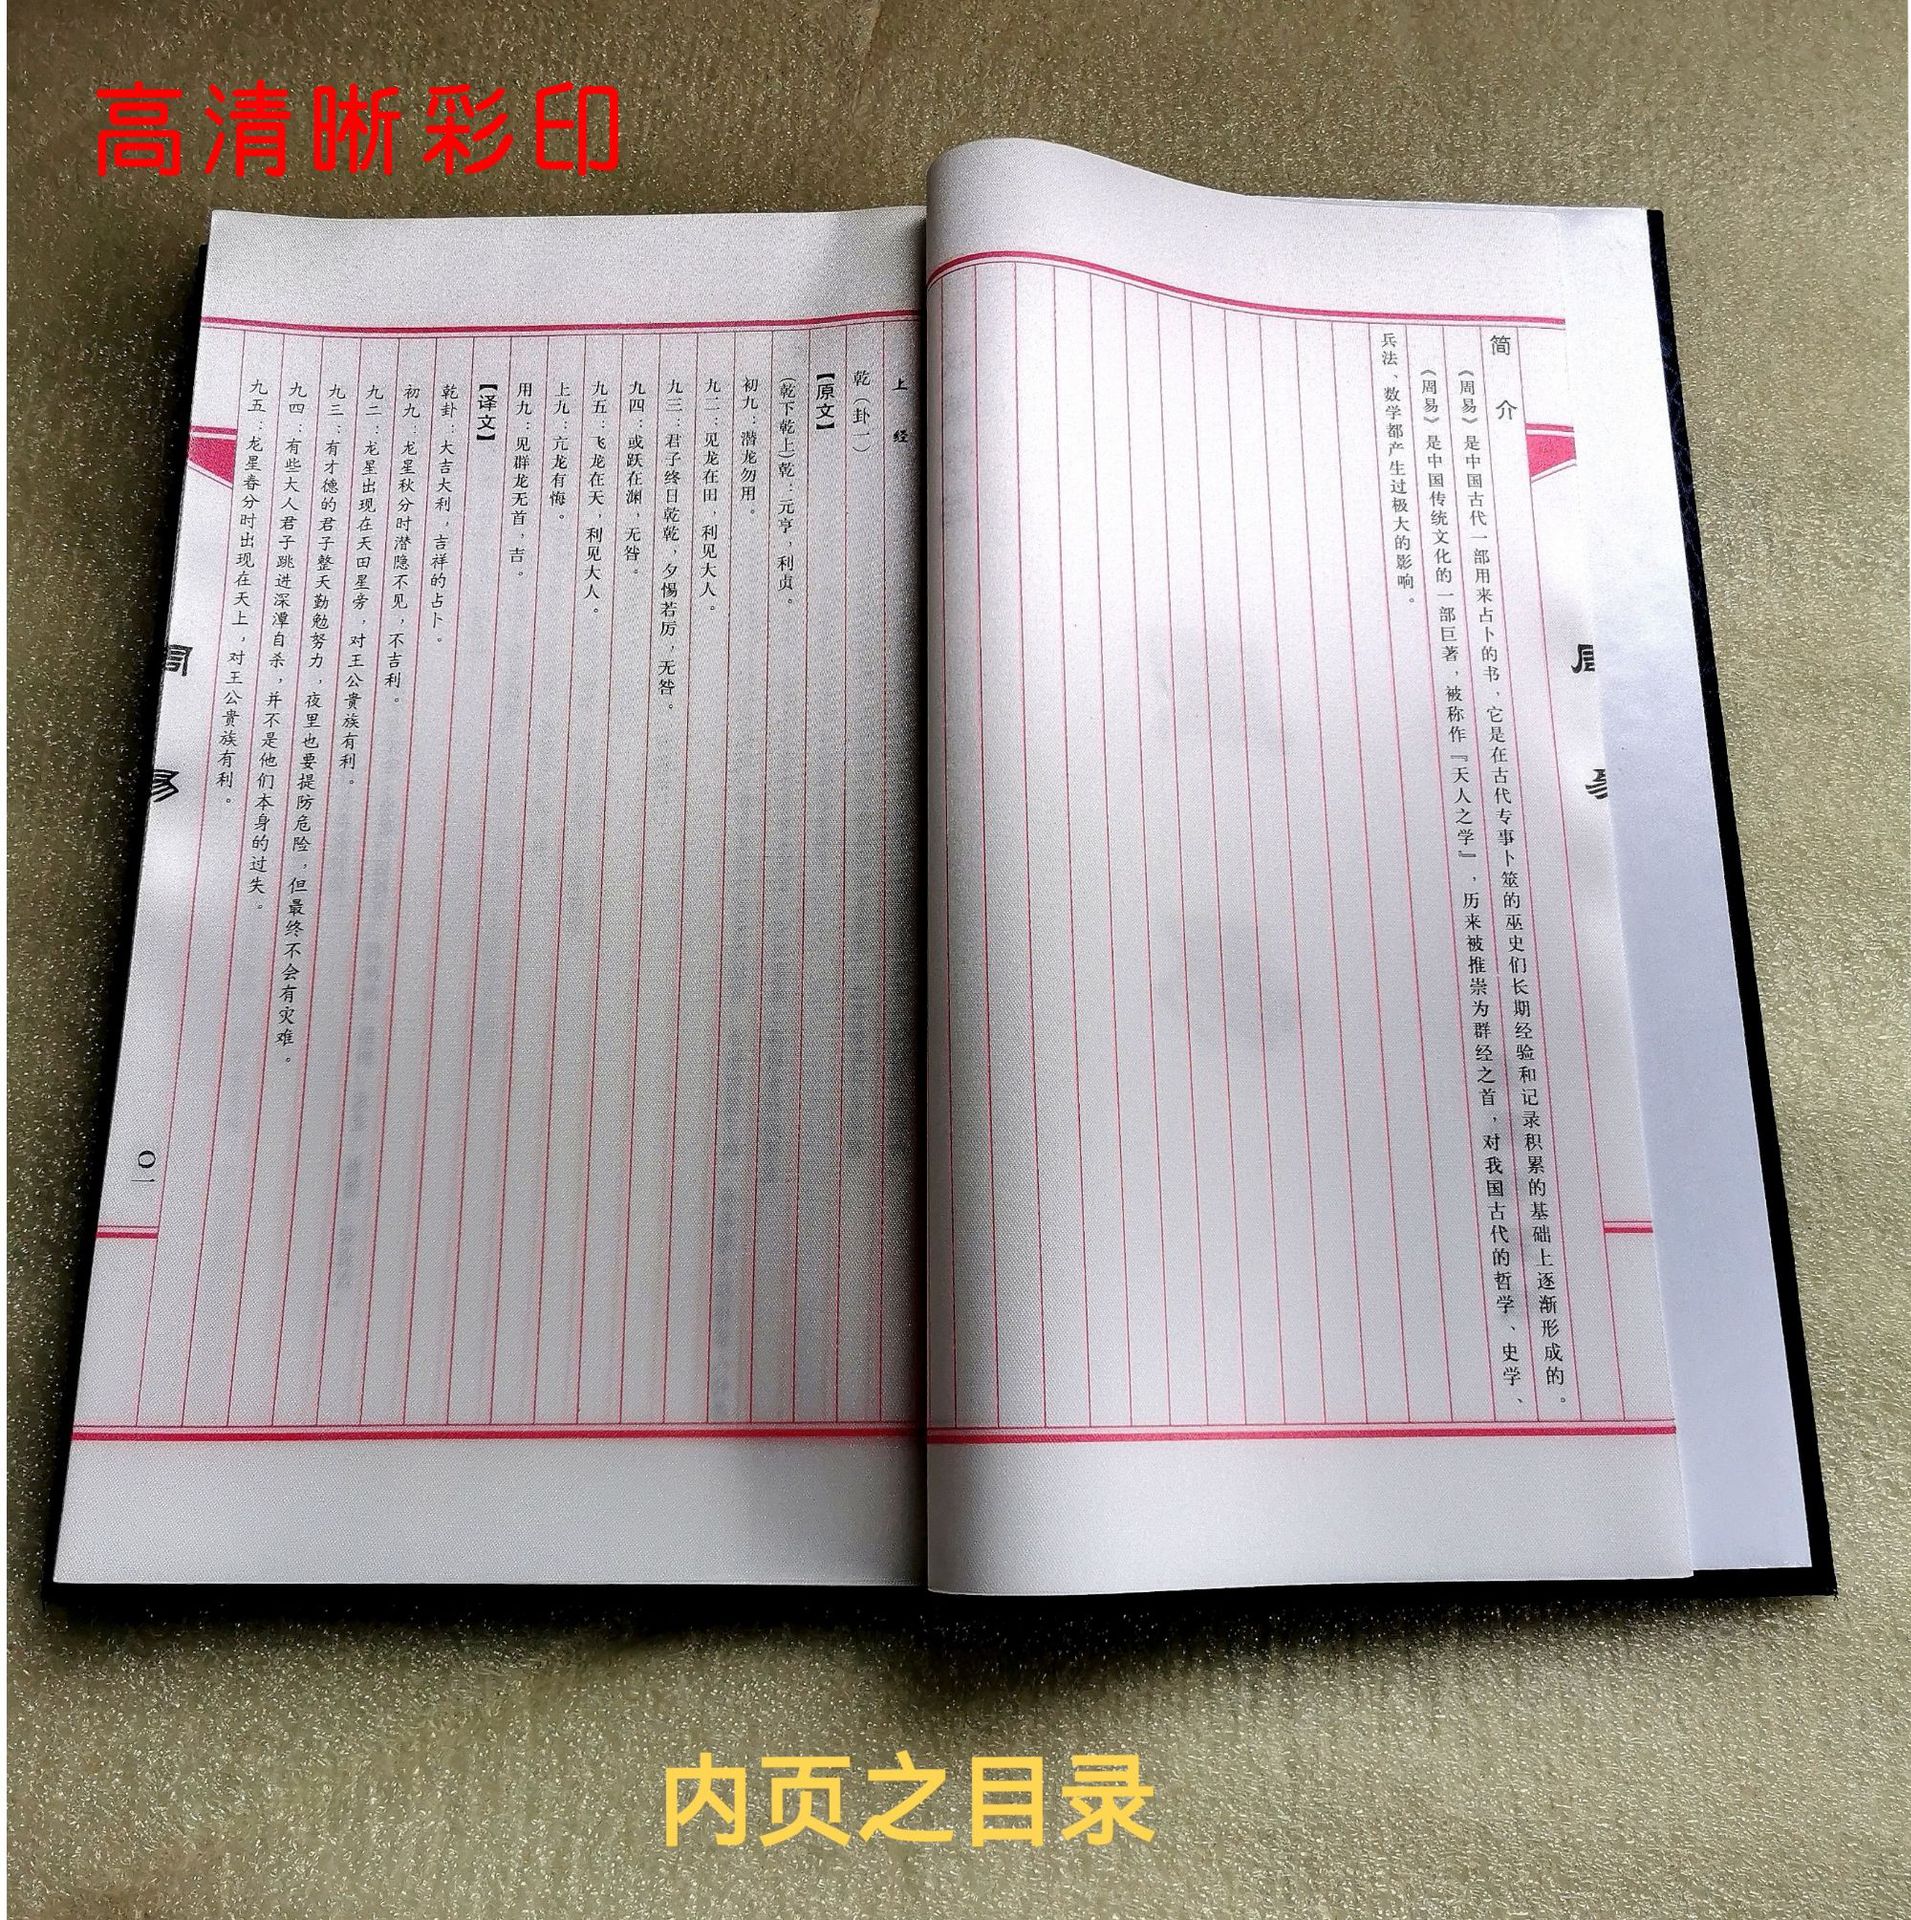 高清晰彩印
简介
《周易》是中国古代一部用来占卜的书，它是在古代专事卜筮的巫史们长期经验和记录积累的基础上逐渐形成的。
《周易》是中国传统文化的一部巨著，被称作『天人之学』，历来被推崇为群经之首，对我国古代的哲学、史学、
兵法、数学都产生过极大的影响。
周易
上经
乾（卦一）
【原文】
（乾下乾上）乾：元亨，利贞。
初九：潜龙勿用。
九二：见龙在田，利见大人。
九三：君子终日乾乾，夕惕若厉，无咎。
九四：或跃在渊，无咎。
九五：飞龙在天，利见大人。
上九：亢龙有悔。
用九：见群龙无首，吉。
【译文】
乾卦：大吉大利，吉祥的占卜。
初九：龙星秋分时潜隐不见，不吉利。
九二：龙星出现在天田星旁，对王公贵族有利。
九三：有才德的君子整天勤勉努力，夜里也要提防危险，但最终不会有灾难。
九四：有些大人君子跳进深潭自杀，并不是他们本身的过失。
九五：龙星春分时出现在天上，对王公贵族有利。
周易
〇一
内页之目录